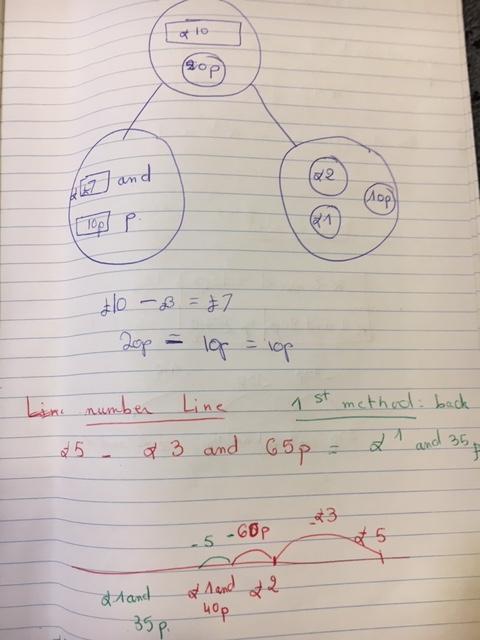 £10
20p
£7 and
10p p.
£2
10p
£1
£10 - £3 = £7
20p = 10p = 10p
number Line 1st method: back
£5 - £3 and 65p = £1 and 35p
-5 -60p -£3
£5
£1 and £1 and £2
35p. 40p